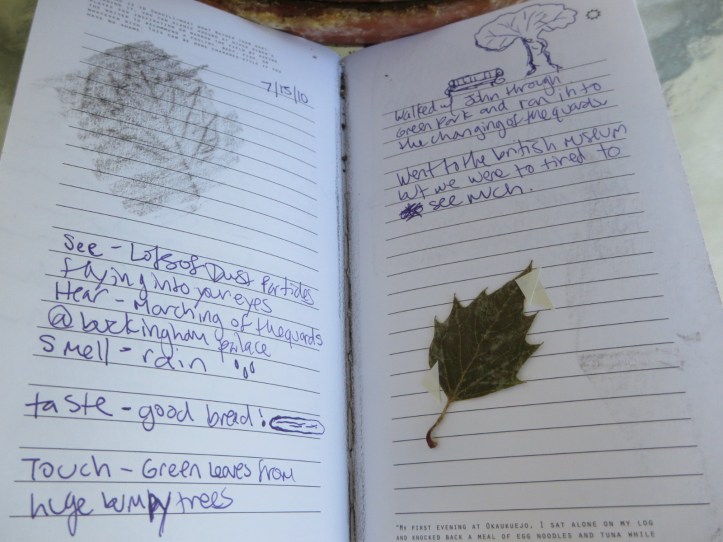 7/15/10
See - Lots of Dust Particles
flying into your eyes
Hear - Marching of the guards
@ buckingham palace
Smell - rain
taste - good bread!
Touch - Green leaves from
huge bumpy trees
Walked w/ John through
Green Park and ran in to
the changing of the guards
Went to the british museum
but we were to tired to
see much.
"My first evening at Okaukuejo, I sat alone on my log
and knocked back a meal of egg noodles and tuna while